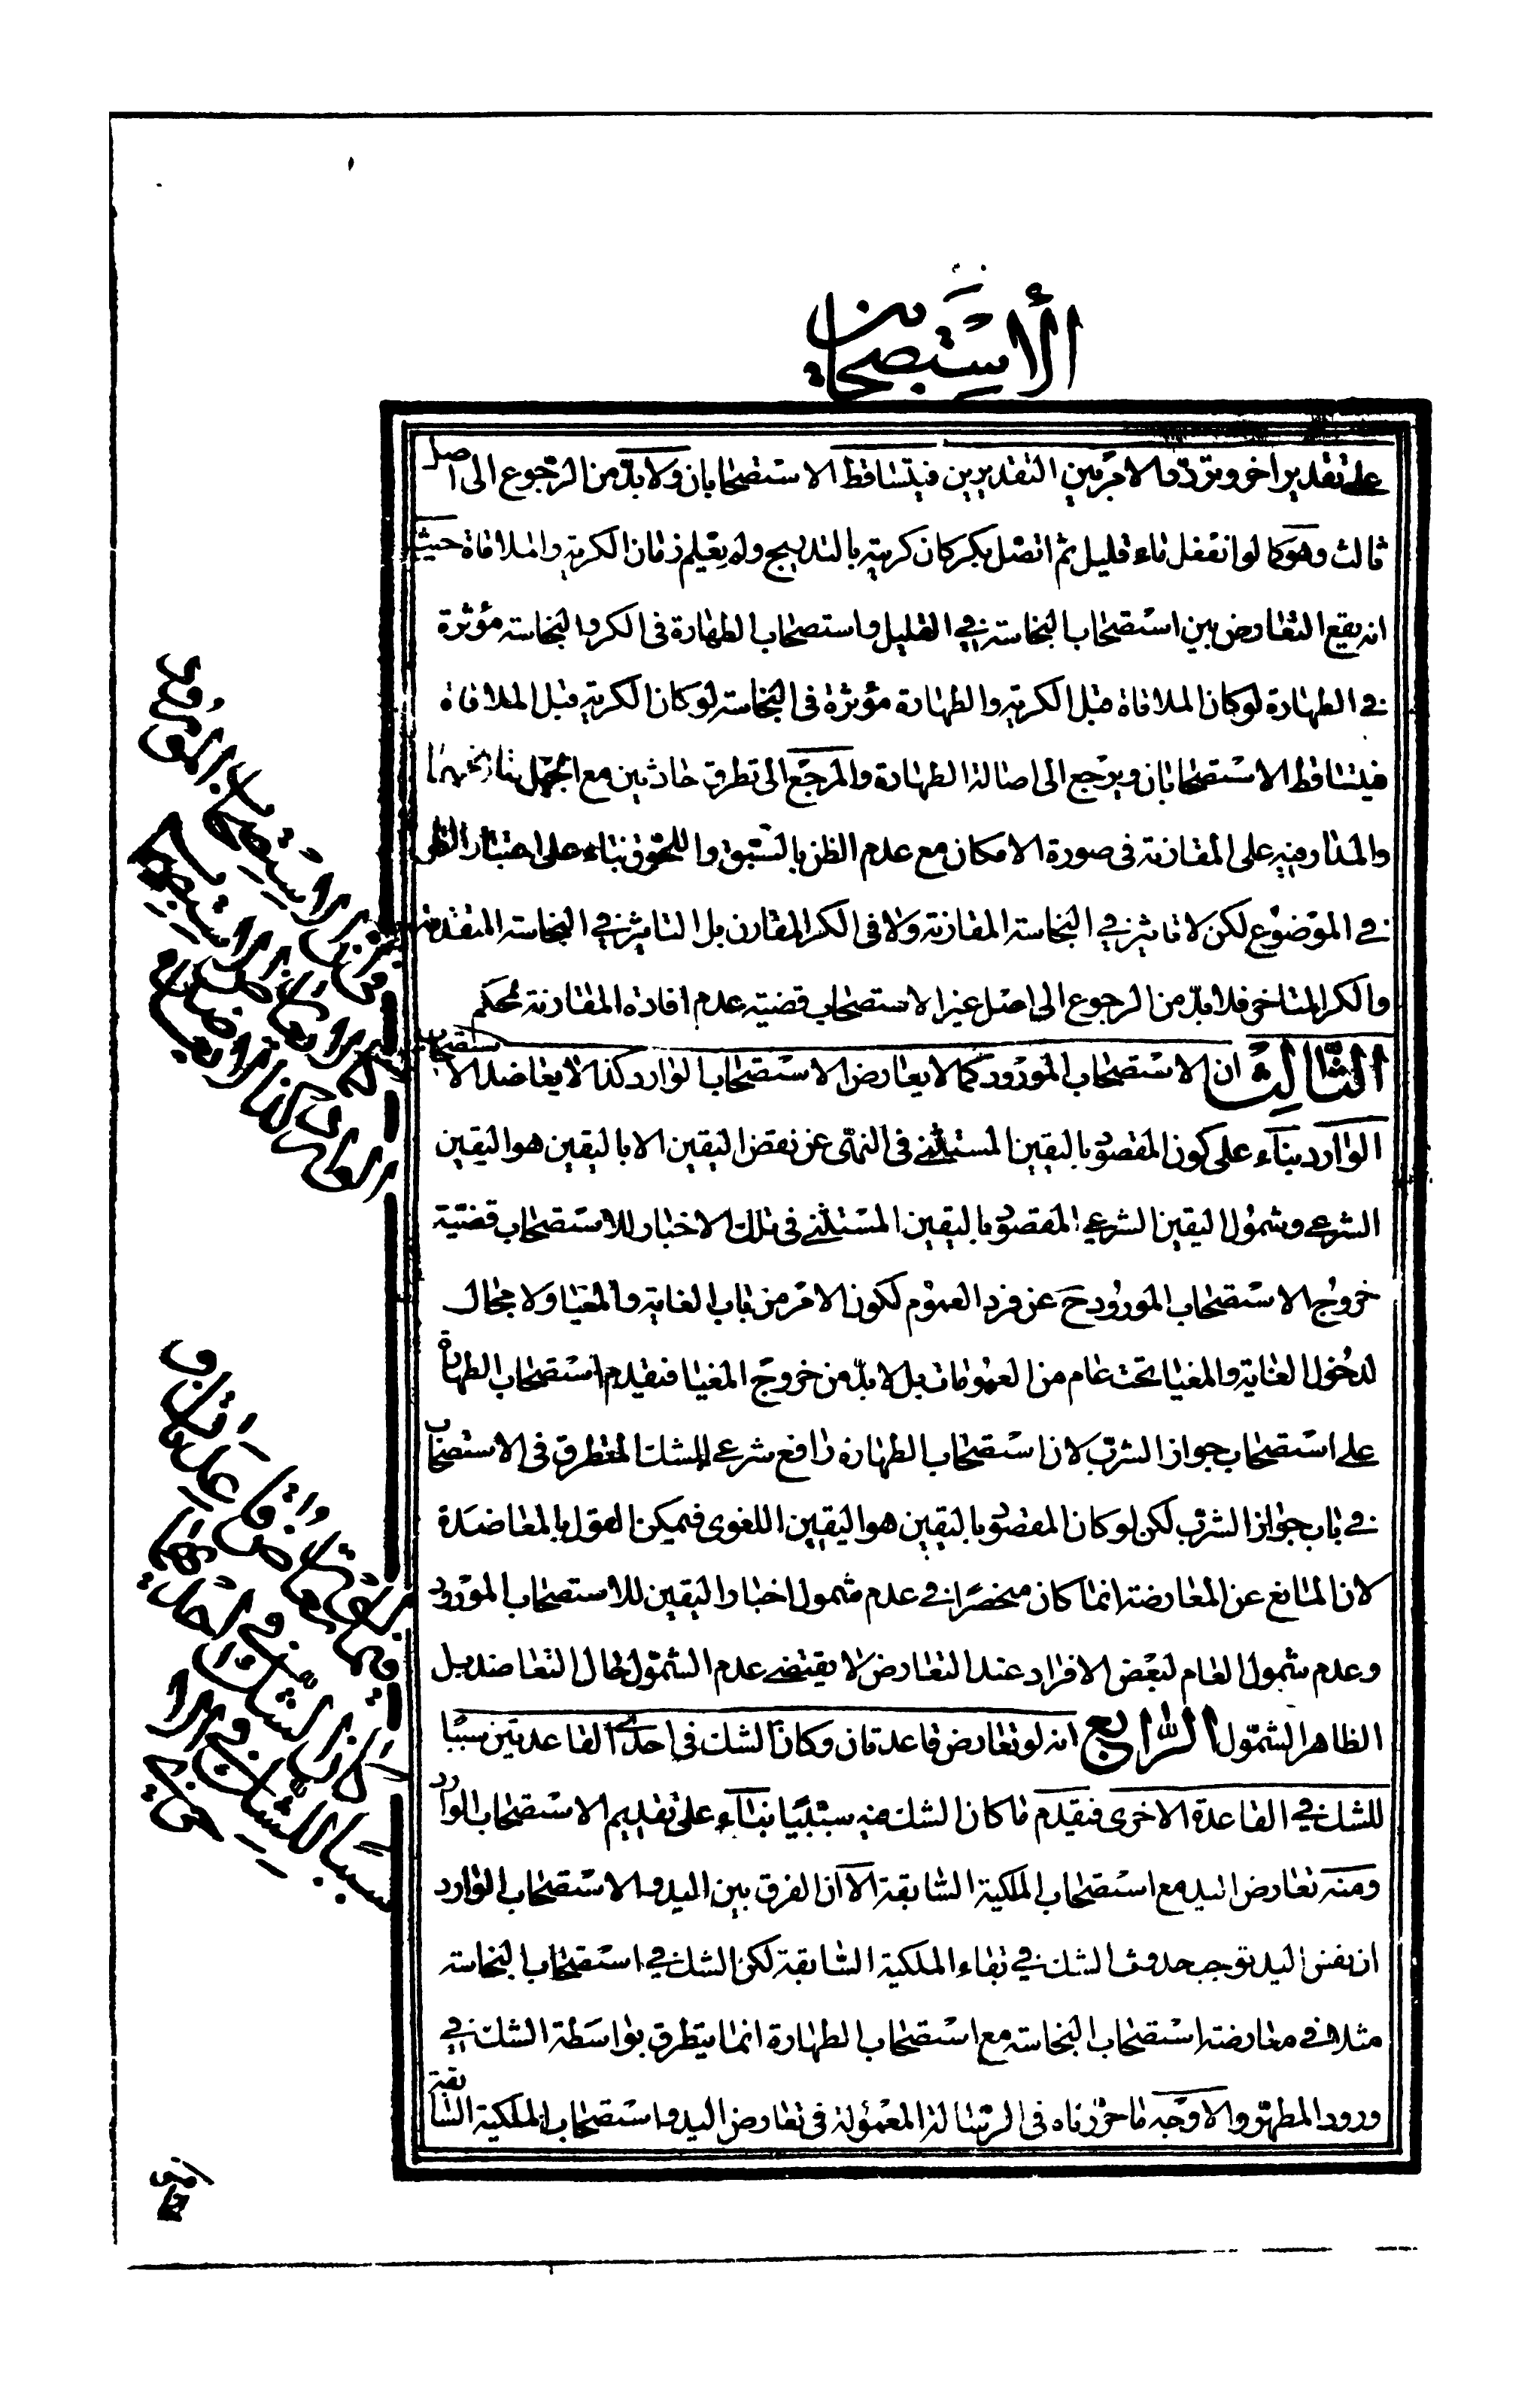 الاستصحاب
على تقدير اخر وتردد الامر بين التقديرين فيتساقط الاستصحابان ولا بدّ من الرّجوع الى اصل
ثالث وهو كما لو انفعل ماء قليل ثم اتصل بكر كان كريته بالتدريج ولم يعلم زمان الكرية والملاقاة حيث
انه يقع التعارض بين استصحاب النجاسة في القليل واستصحاب الطهارة في الكر والنجاسة مؤثرة
في الطهارة لو كان الملاقاة قبل الكرية والطهارة مؤثرة في النجاسة لو كان الكرية قبل الملاقاة
فيتساقط الاستصحابان ويرجع الى اصالة الطهارة والمرجع الى تطرق حادثين مع الجهل بتاريخهما
والمدار فيه على المقارنة في صورة الامكان مع عدم الظن بالسّبق واللحوق بناء على اعتبار الظن
في الموضوع لكن لا تاثير في النجاسة المقارنة ولا في الكر المقارن بل التاثير في النجاسة المتقدمة
والكر المتاخر فلا بدّ من الرجوع الى اصل غير الاستصحاب قضية عدم افادة المقارنة لحكم
الثالث ان الاستصحاب المورود كما لا يعارض الاستصحاب الوارد كذا لا يعاضد الاستصحاب
الوارد بناء على كون المقصود باليقين المستثنى في النهى عن نقض اليقين الا باليقين هو اليقين
الشرعي وشمول اليقين الشرعي المقصود باليقين المستثنى في تلك الاخبار للاستصحاب قضية
خروج الاستصحاب المورود ح عن فرد العموم لكون الامر من باب الغاية والمغيا ولا مجال
لدخول الغاية والمغيا تحت عام من العمومات بل لا بدّ من خروج المغيا فتقديم استصحاب الطهارة
على استصحاب جواز الشرب لان استصحاب الطهارة رافع شرعي للشك المتطرق في الاستصحاب
في باب جواز الشرب لكن لو كان المقصود باليقين هو اليقين اللغوى فيمكن القول بالمعاضدة
لان المانع عن المعارضة انما كان منحصرا في عدم شمول اخبار اليقين للاستصحاب المورود
وعدم شمول العام لبعض الافراد عند التعارض لا يقتضى عدم الشمول حال التعاضد بل
الظاهر الشمول الرّابع انه لو تعارض قاعدتان وكان الشك في احدى القاعدتين سببا
للشك في القاعدة الاخرى فيقدم ما كان الشك فيه سببيا بناء على تقديم الاستصحاب الوارد
ومنه تعارض اليد مع استصحاب الملكية السّابقة الا ان الفرق بين اليد والاستصحاب الوارد
ان نفس اليد توجب حدوث الشك في بقاء الملكية السّابقة لكن الشك في استصحاب النجاسة
مثلا في معارضة استصحاب النجاسة مع استصحاب الطهارة انما يتطرق بواسطة الشك في
ورود المطهر والاوجه ما حررناه في الرّسالة المعمولة في تعارض اليد واستصحاب الملكية السّابقة
في ان الاستصحاب المورود
كما لا يعارض الاستصحاب
الوارد كذا لا يعاضده
فيما لو تعارض قاعدتان و
كان الشك في احديهما
سببا للشك في الاخرى